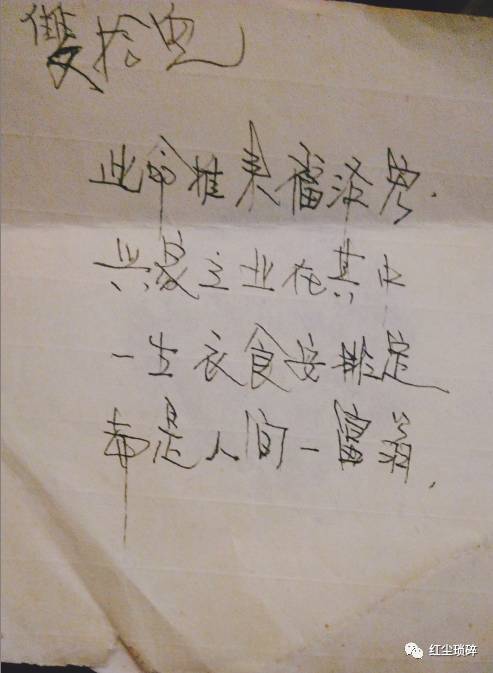 雙拾
此命推来福泽
兴家立业在其中
一生衣食安排
是人间一富翁.
红尘琐碎